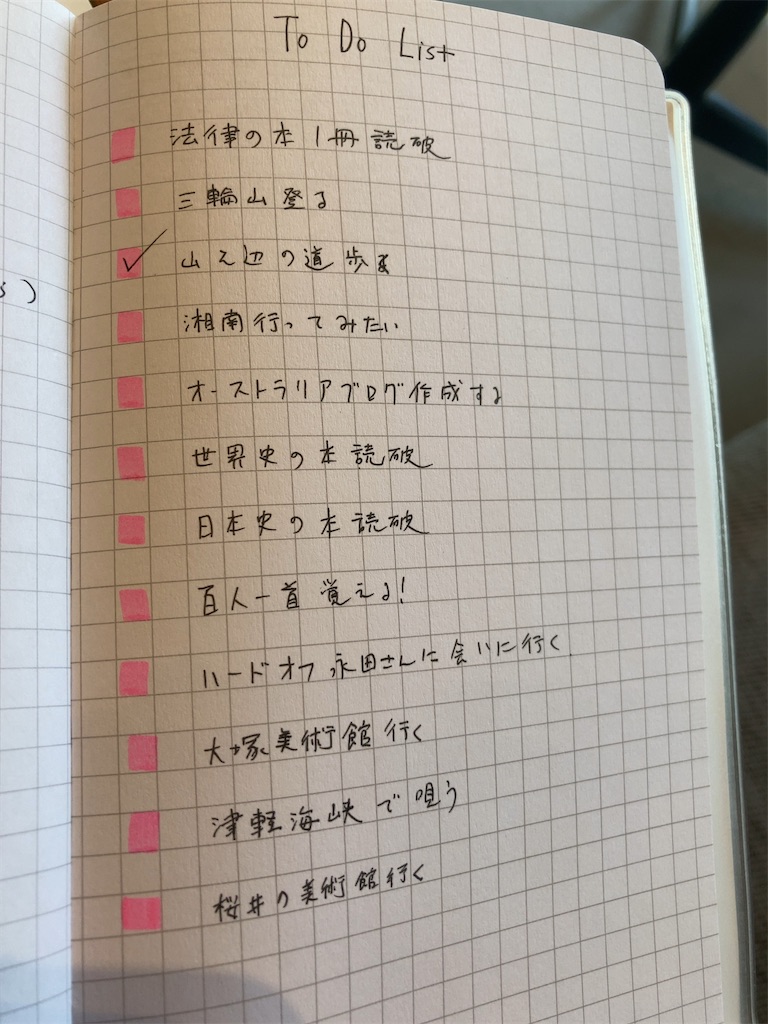 To Do List
法律の本1冊読破
三輪山登る
山之辺の道歩ま
湘南行ってみたい
オーストラリアブログ作成する
世界史の本読破
日本史の本読破
百人一首覚える!
ハードオフ永田さんに会いに行く
大塚美術館行く
津軽海峡で唄う
桜井の美術館行く